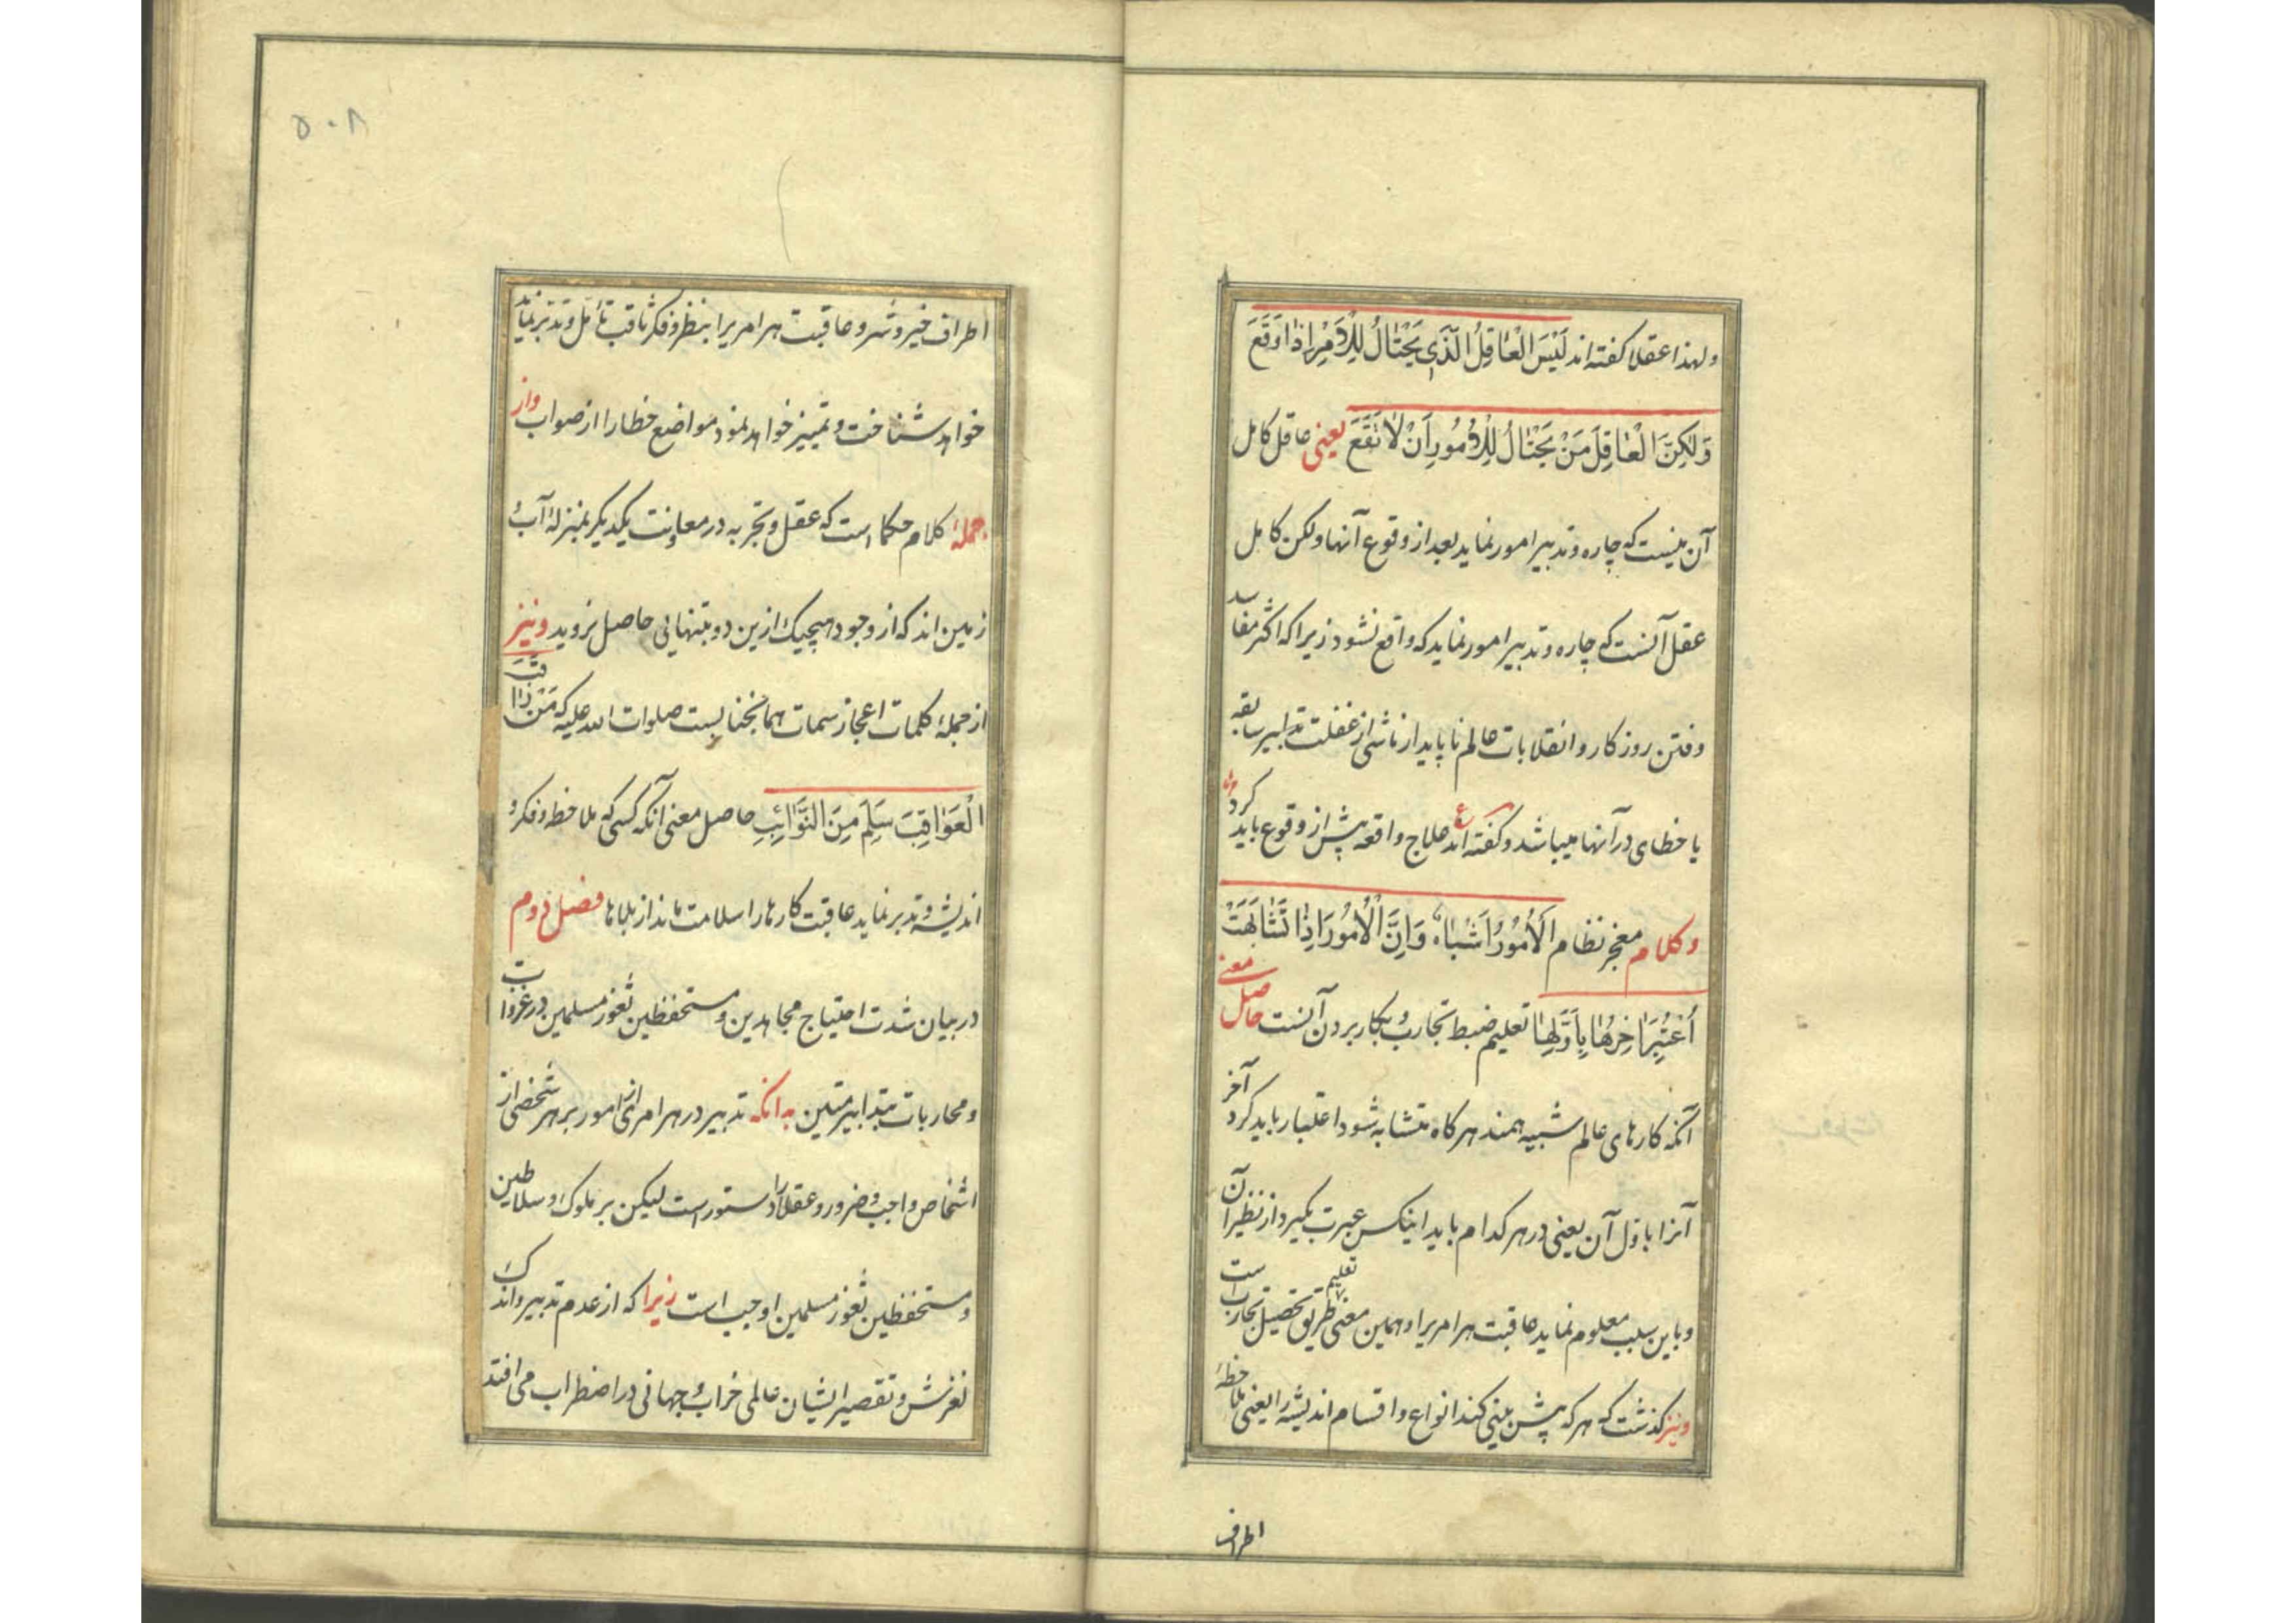 ولهذا عقلا کفته اند لَیْسَ الْعٰاقِلُ الَّذی یَحْتٰالُ لِلْاَمْرِ اِذٰا وَقَعَ
وَلٰکِنَّ الْعٰاقِلَ مَنْ یَحْتٰالُ لِلْاُمُورِ اَنْ لٰا تَقَعَ یعنی عاقل کامل
آن نیست که چاره و تدبیر امور نماید بعد از وقوع آنها ولکن کامل
عقل آنست که چاره و تدبیر امور نماید که واقع نشود زیرا که اکثر مفاسد
وفتن روزکار و انقلابات عالم ناپایدار ناشی از غفلت تدابیر سابقه
یا خطای در آنها میباشد و کفته اند ع علاج واقعه پیش از وقوع باید کرد
وکلام معجز نظام اَلْاُمُورُ اَشْبٰاهٌ وَاِنَّ الْاُمُورَ اِذٰا تَشٰابَهَتْ
اُعْتُبِرَ اٰخِرُهٰا بِاَوَّلِهٰا تعلیم ضبط تجارب و بکار بردن آنست حاصل معنی
آنکه کارهای عالم شبیه همند هرکاه متشابه شود اعتبار باید کرد آخر
آنرا باوّل آن یعنی در هر کدام باید اینکس عبرت بکیرد از نظیر آن
و باین سبب معلوم نماید عاقبت هر امریرا و همین معنی تعلیم طریق تحصیل تجارب است
ونیز کذشت که هر که پیش بینی کند انواع و اقسام اندیشه را یعنی ملاحظهٔ
اطراف
۵۰۸
اطراف خیر و شر و عاقبت هر امریرا بنظر و فکر ثاقب تأمل و تدبر نماید
خواهد شناخت و تمییز خواهد نمود مواضع خطا را از صواب واز
جملهٔ کلام حکما است که عقل و تجربه در معاونت یکدیکر بمنزلهٔ آب و
زمین اند که از وجود هیچیک ازین دو بتنهائی حاصل نروید ونیز
از جملهٔ کلمات اعجاز سمات همانجنابست صلوات الله علیه که مَنْ رٰاقَبَ
الْعَوٰاقِبَ سَلِمَ مِنَ النَّوٰائِبِ حاصل معنی آنکه کسی که ملاحظه و فکر و
اندیشه و تدبر نماید عاقبت کارها را سلامت ماند از بلاها فصل دوم
در بیان شدت احتیاج مجاهدین و مستحفظین ثغور مسلمین در غزوات
و محاربات بتدابیر متین بدانکه تدبیر در هر امری از امور بر هر شخصی از
اشخاص واجب و ضرور و عقلا را دستور است لیکن بر ملوک و سلاطین
و مستحفظین ثغور مسلمین اوجب است زیرا که از عدم تدبیر و اندک
لغزش و تقصیر ایشان عالمی خراب و جهانی در اضطراب می افتد